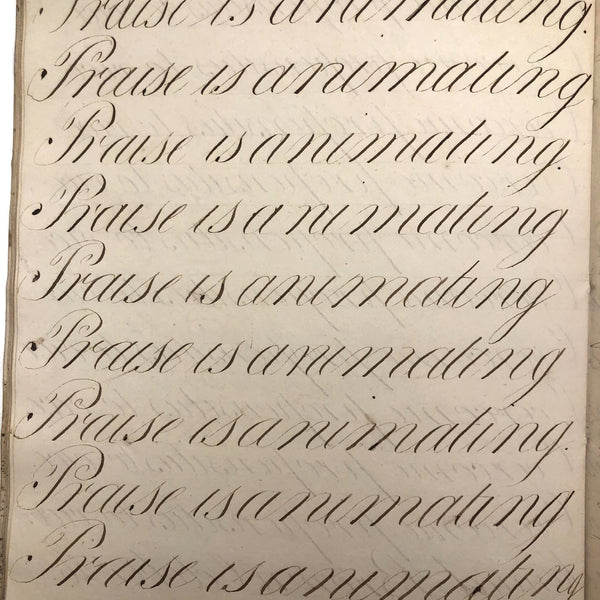 Praise is animating.
Praise is animating
Praise is animating.
Praise is animating
Praise is animating
Praise is animating
Praise is animating.
Praise is animating
Praise is animating